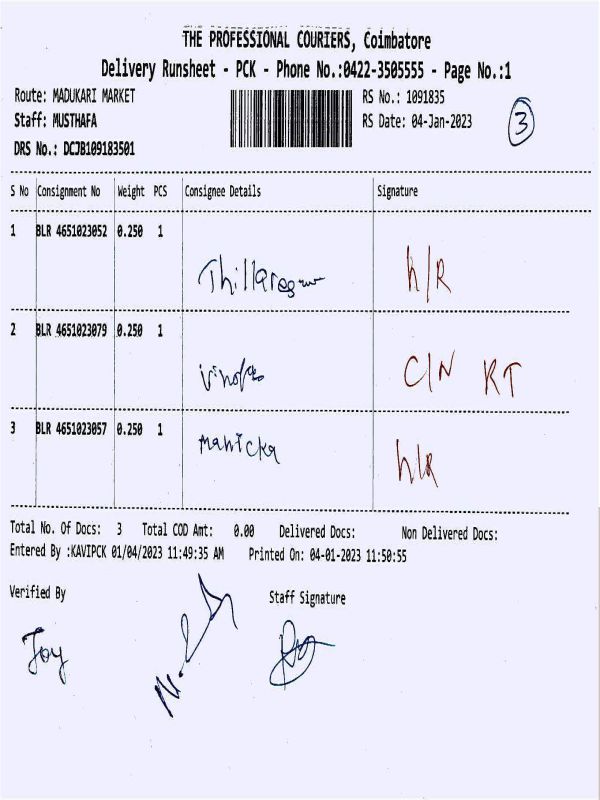 THE PROFESSIONAL COURIERS, Coimbatore
Delivery Runsheet - PCK - Phone No.:0422-3505555 - Page No.:1
Route: MADUKARI MARKET
RS No.: 1091835
Staff: MUSTHAFA
RS Date: 04-Jan-2023
3
DRS No.: DCJB109183501
S No Consignment No Weight PCS Consignee Details Signature
1 BLR 4651023052 0.250 1
h/R
2 BLR 4651023079 0.250 1
C/N KT
3 BLR 4651023057 0.250 1
Manicka h/R
Total No. Of Docs: 3 Total COD Amt: 0.00 Delivered Docs: Non Delivered Docs:
Entered By :KAVIPCK 01/04/2023 11:49:35 AM Printed On: 04-01-2023 11:50:55
Verified By Staff Signature
Joy